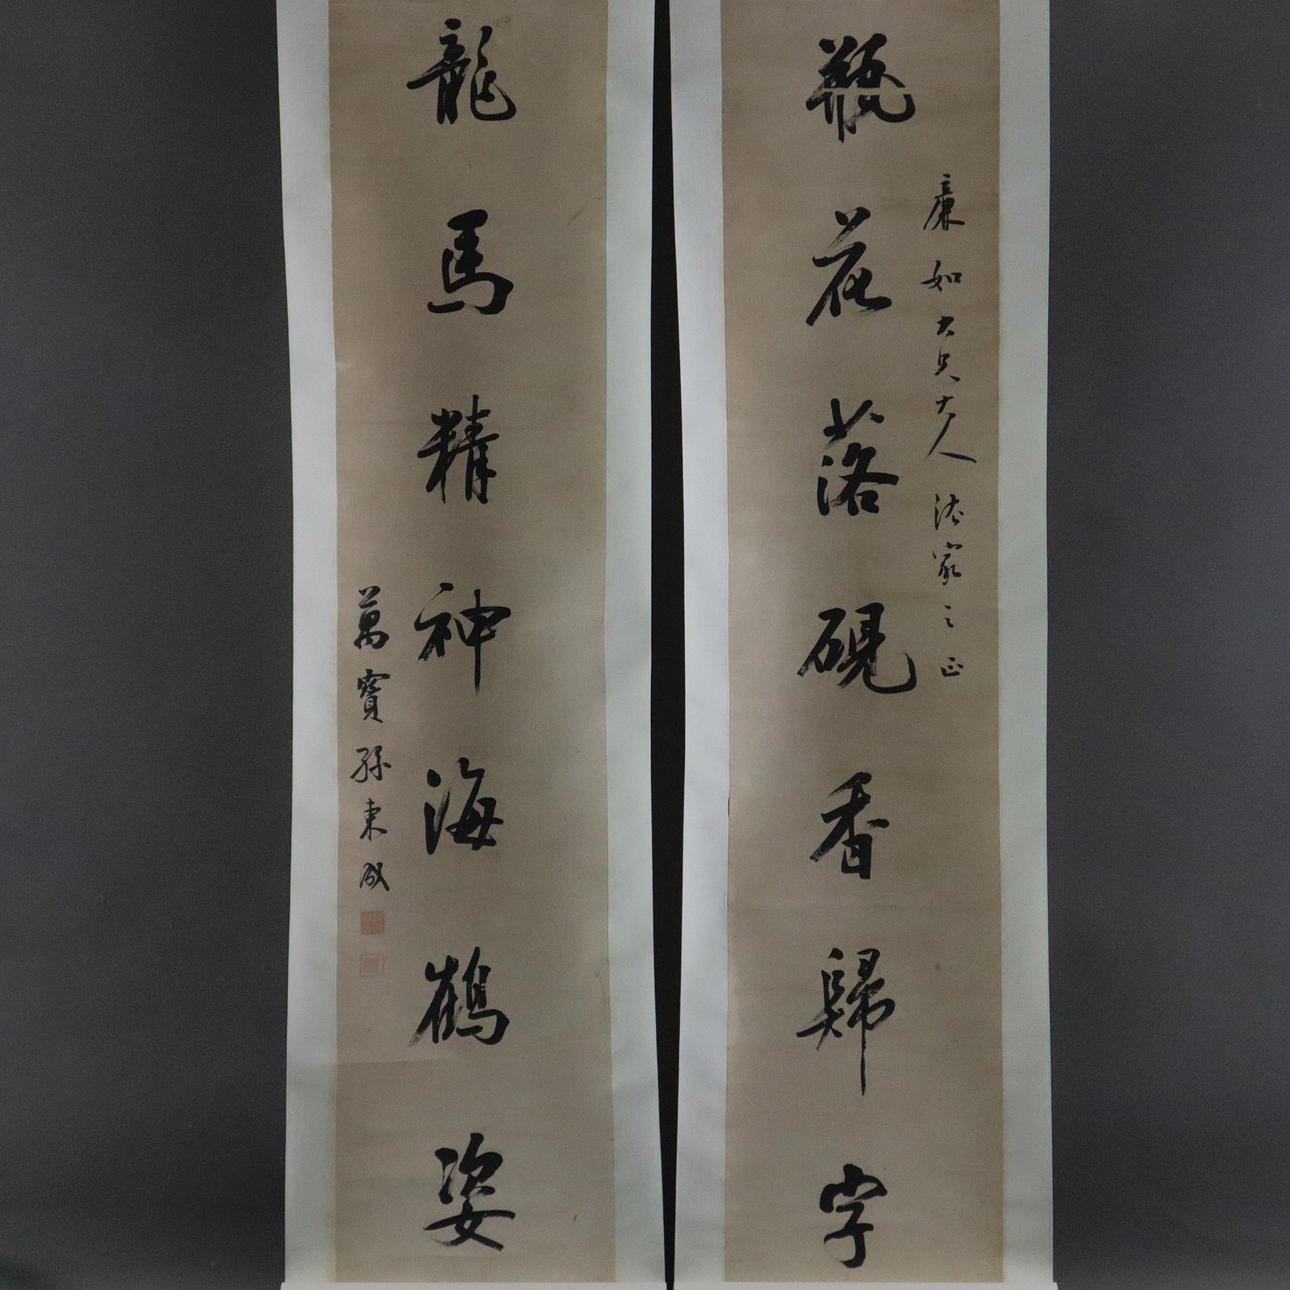 廉如大兄大人法家之正
瓶花落硯香歸字
龍馬精神海鶴姿
萬寶孫東成